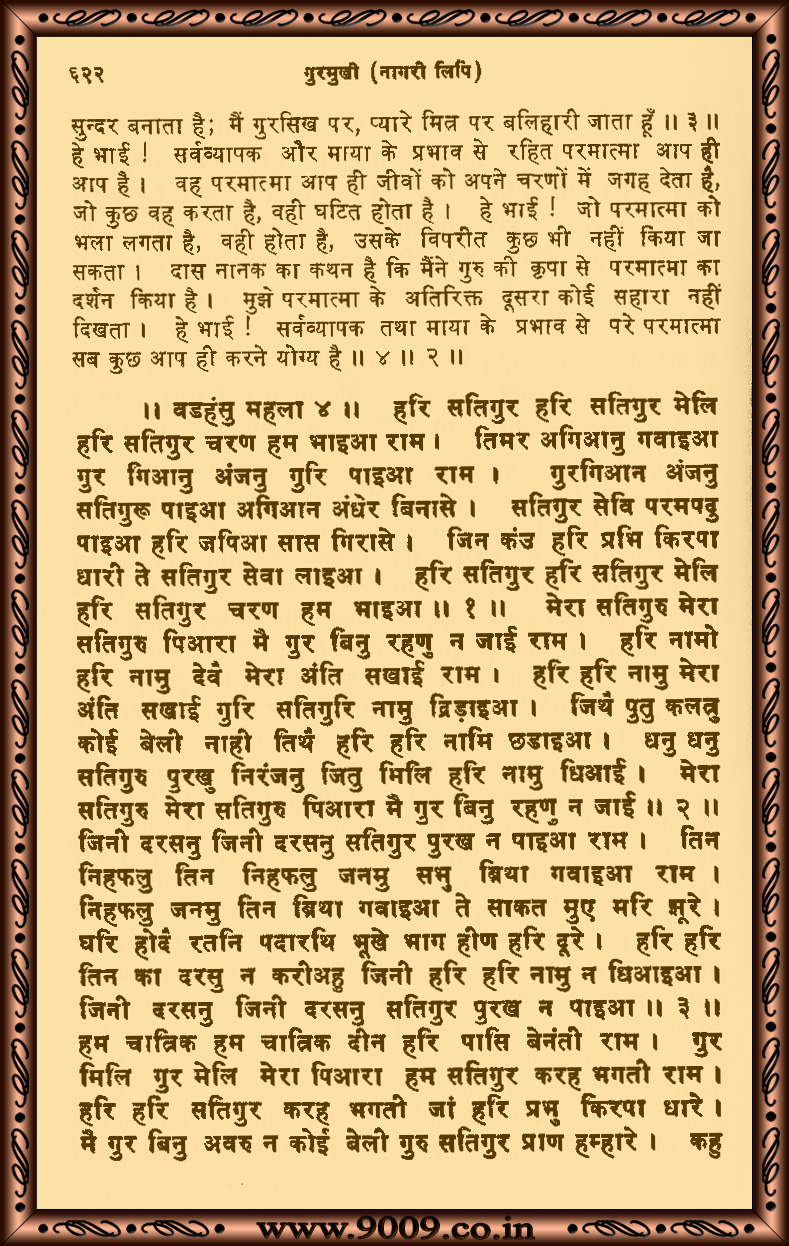 ६२२ गुरमुखी (नागरी लिपि)
सुन्दर बनाता है; मैं गुरसिख पर, प्यारे मित्र पर बलिहारी जाता हूँ ॥ ३ ॥
हे भाई ! सर्वव्यापक और माया के प्रभाव से रहित परमात्मा आप ही
आप है । वह परमात्मा आप ही जीवों को अपने चरणों में जगह देता है,
जो कुछ वह करता है, वही घटित होता है । हे भाई ! जो परमात्मा को
भला लगता है, वही होता है, उसके विपरीत कुछ भी नहीं किया जा
सकता । दास नानक का कथन है कि मैंने गुरु की कृपा से परमात्मा का
दर्शन किया है । मुझे परमात्मा के अतिरिक्त दूसरा कोई सहारा नहीं
दिखता । हे भाई ! सर्वव्यापक तथा माया के प्रभाव से परे परमात्मा
सब कुछ आप ही करने योग्य है ॥ ४ ॥ २ ॥
॥ वडहंसु महला ४ ॥ हरि सतिगुर हरि सतिगुर मेलि
हरि सतिगुर चरण हम भाइआ राम । तिमर अगिआनु गवाइआ
गुर गिआनु अंजनु गुरि पाइआ राम । गुरगिआन अंजनु
सतिगुरू पाइआ अगिआन अंधेर बिनासे । सतिगुर सेवि परमपदु
पाइआ हरि जपिआ सास गिरासे । जिन कंउ हरि प्रभि किरपा
धारी ते सतिगुर सेवा लाइआ । हरि सतिगुर हरि सतिगुर मेलि
हरि सतिगुर चरण हम भाइआ ॥ १ ॥ मेरा सतिगुरु मेरा
सतिगुरु पिआरा मै गुर बिनु रहणु न जाई राम । हरि नामो
हरि नामु देवै मेरा अंति सखाई राम । हरि हरि नामु मेरा
अंति सखाई गुरि सतिगुरि नामु द्रिड़ाइआ । जिथै पुतु कलत्रु
कोई बेली नाही तिथै हरि हरि नामि छडाइआ । धनु धनु
सतिगुरु पुरखु निरंजनु जितु मिलि हरि नामु धिआई । मेरा
सतिगुरु मेरा सतिगुरु पिआरा मै गुर बिनु रहणु न जाई ॥ २ ॥
जिनी दरसनु जिनी दरसनु सतिगुर पुरख न पाइआ राम । तिन
निहफलु तिन निहफलु जनमु सभु ब्रिथा गवाइआ राम ।
निहफलु जनमु तिन ब्रिथा गवाइआ ते साकत मुए मरि झूरे ।
घरि होदै रतनि पदारथि भूखे भाग हीण हरि दूरे । हरि हरि
तिन का दरसु न करीअहु जिनी हरि हरि नामु न धिआइआ ।
जिनी दरसनु जिनी दरसनु सतिगुर पुरख न पाइआ ॥ ३ ॥
हम चात्रिक हम चात्रिक दीन हरि पासि बेनंती राम । गुर
मिलि गुर मेलि मेरा पिआरा हम सतिगुर करह भगती राम ।
हरि हरि सतिगुर करह भगती जां हरि प्रभु किरपा धारे ।
मै गुर बिनु अवरु न कोई बेली गुरु सतिगुर प्राण हम्हारे । कहु
www.9009.co.in